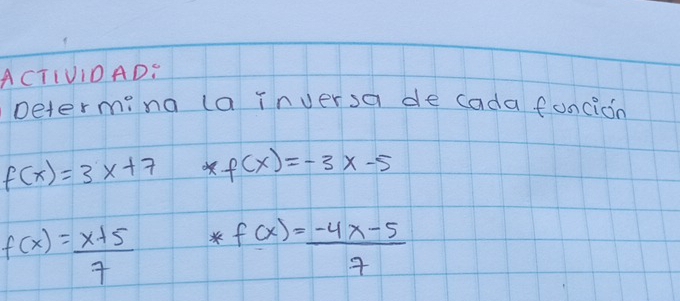 ACTIVIDAD:
Determina la inversa de cada función
f(x)=3x+7 *f(x)=-3x-5
f(x)=x+5/7 *f(x)=-4x-5/7